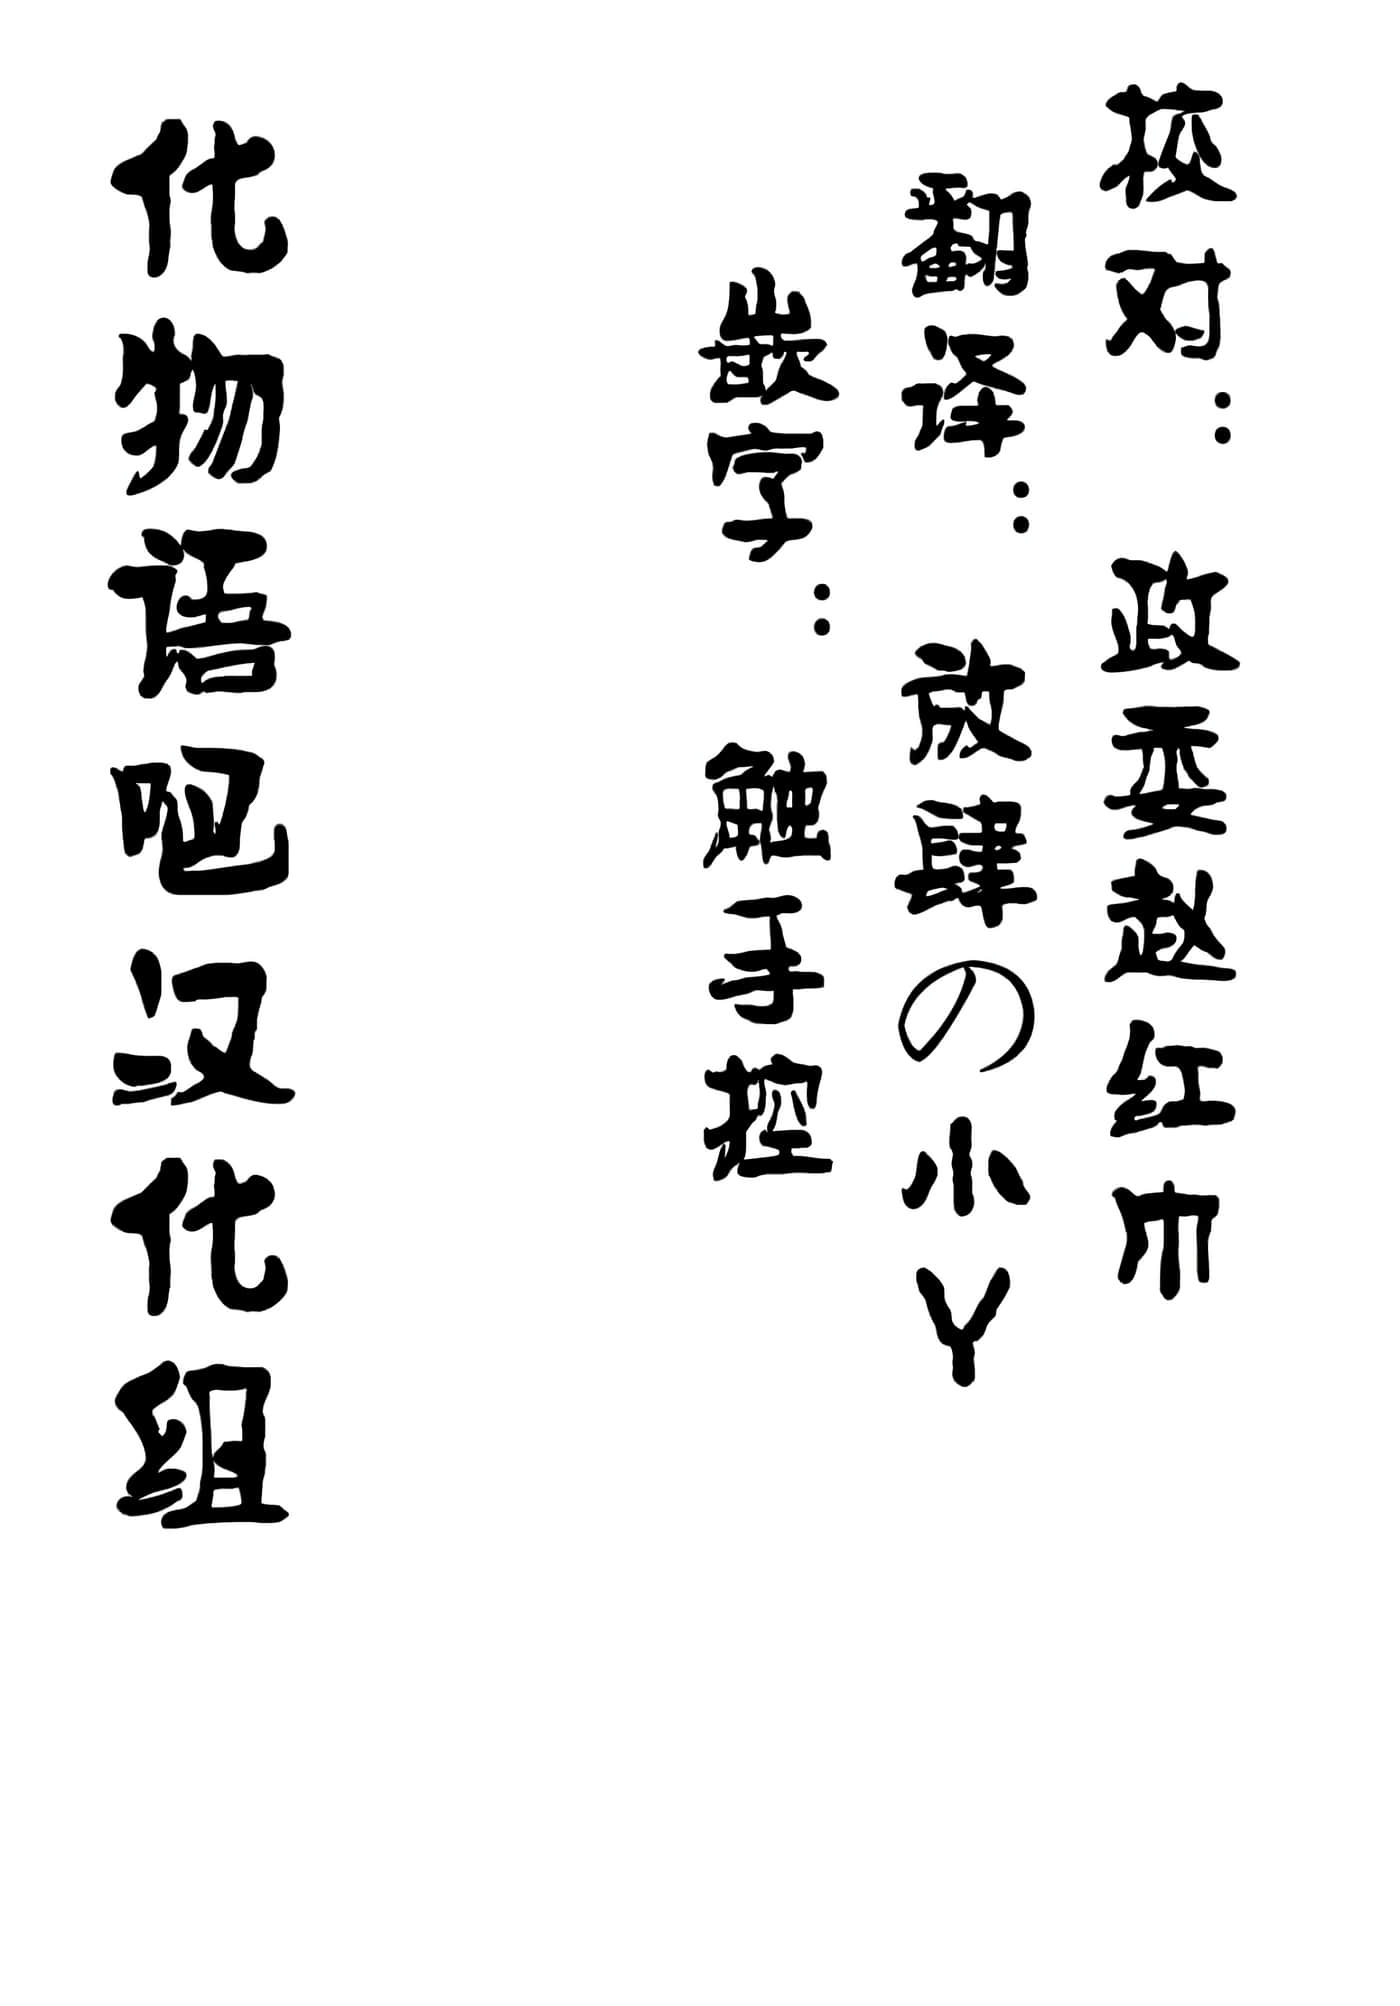 校对：政委赵红巾
翻译：放肆の小Y
嵌字：触手控
化物语吧汉化组